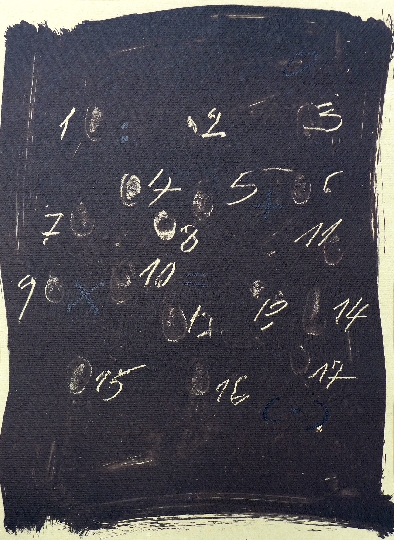 1 2 3
4 5 6
7 8 11
9 10
12 13 14
15 16 17